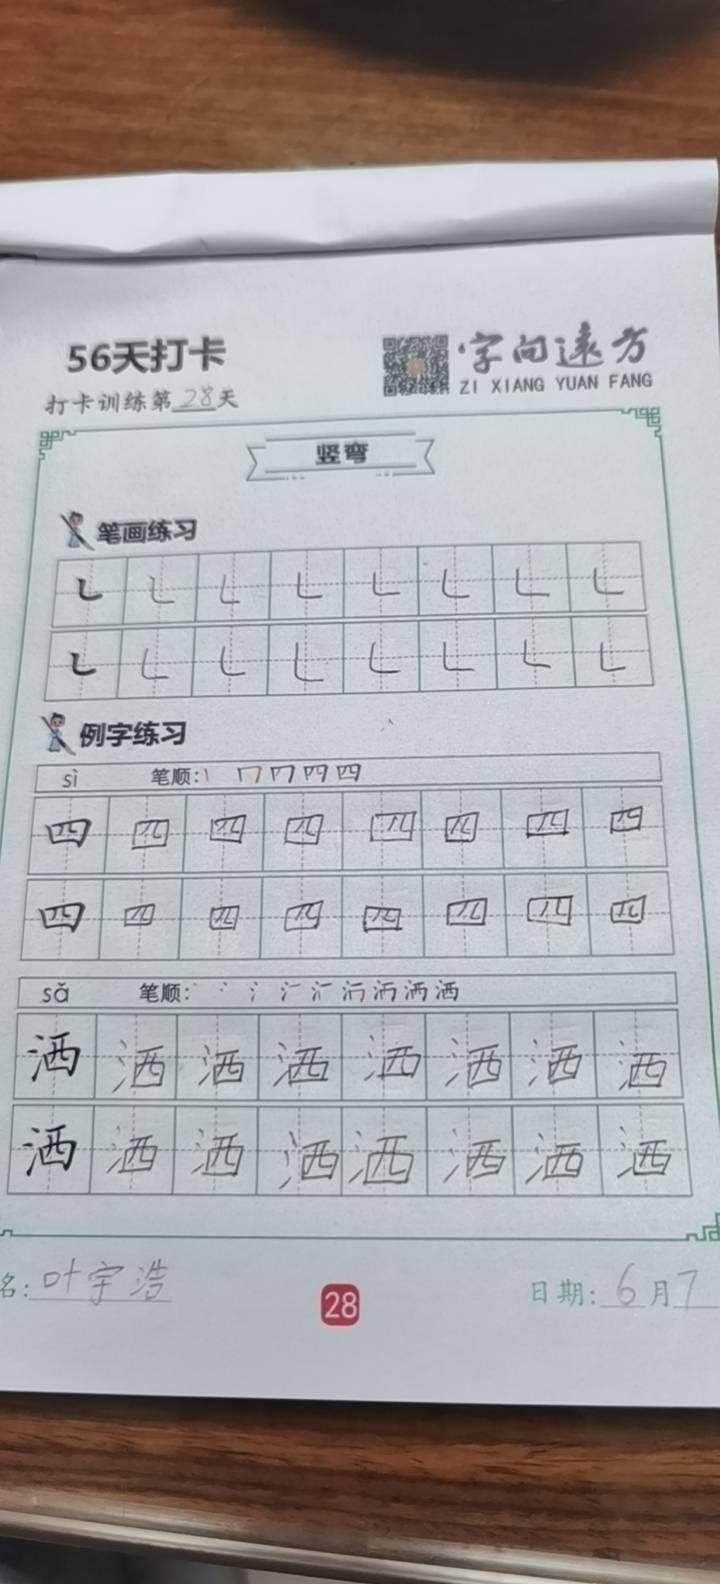 56天打卡
字向远方
ZI XIANG YUAN FANG
打卡训练第28天
竖弯
笔画练习
㇄ ㇄ ㇄ ㇄ ㇄ ㇄ ㇄ ㇄
㇄ ㇄ ㇄ ㇄ ㇄ ㇄ ㇄ ㇄
例字练习
sì 笔顺:
四 四 四 四 四 四 四 四
四 四 四 四 四 四 四 四
sǎ 笔顺:
洒 洒 洒 洒 洒 洒 洒 洒
洒 洒 洒 洒 洒 洒 洒 洒
名: 叶宇浩
28
日期: 6月7